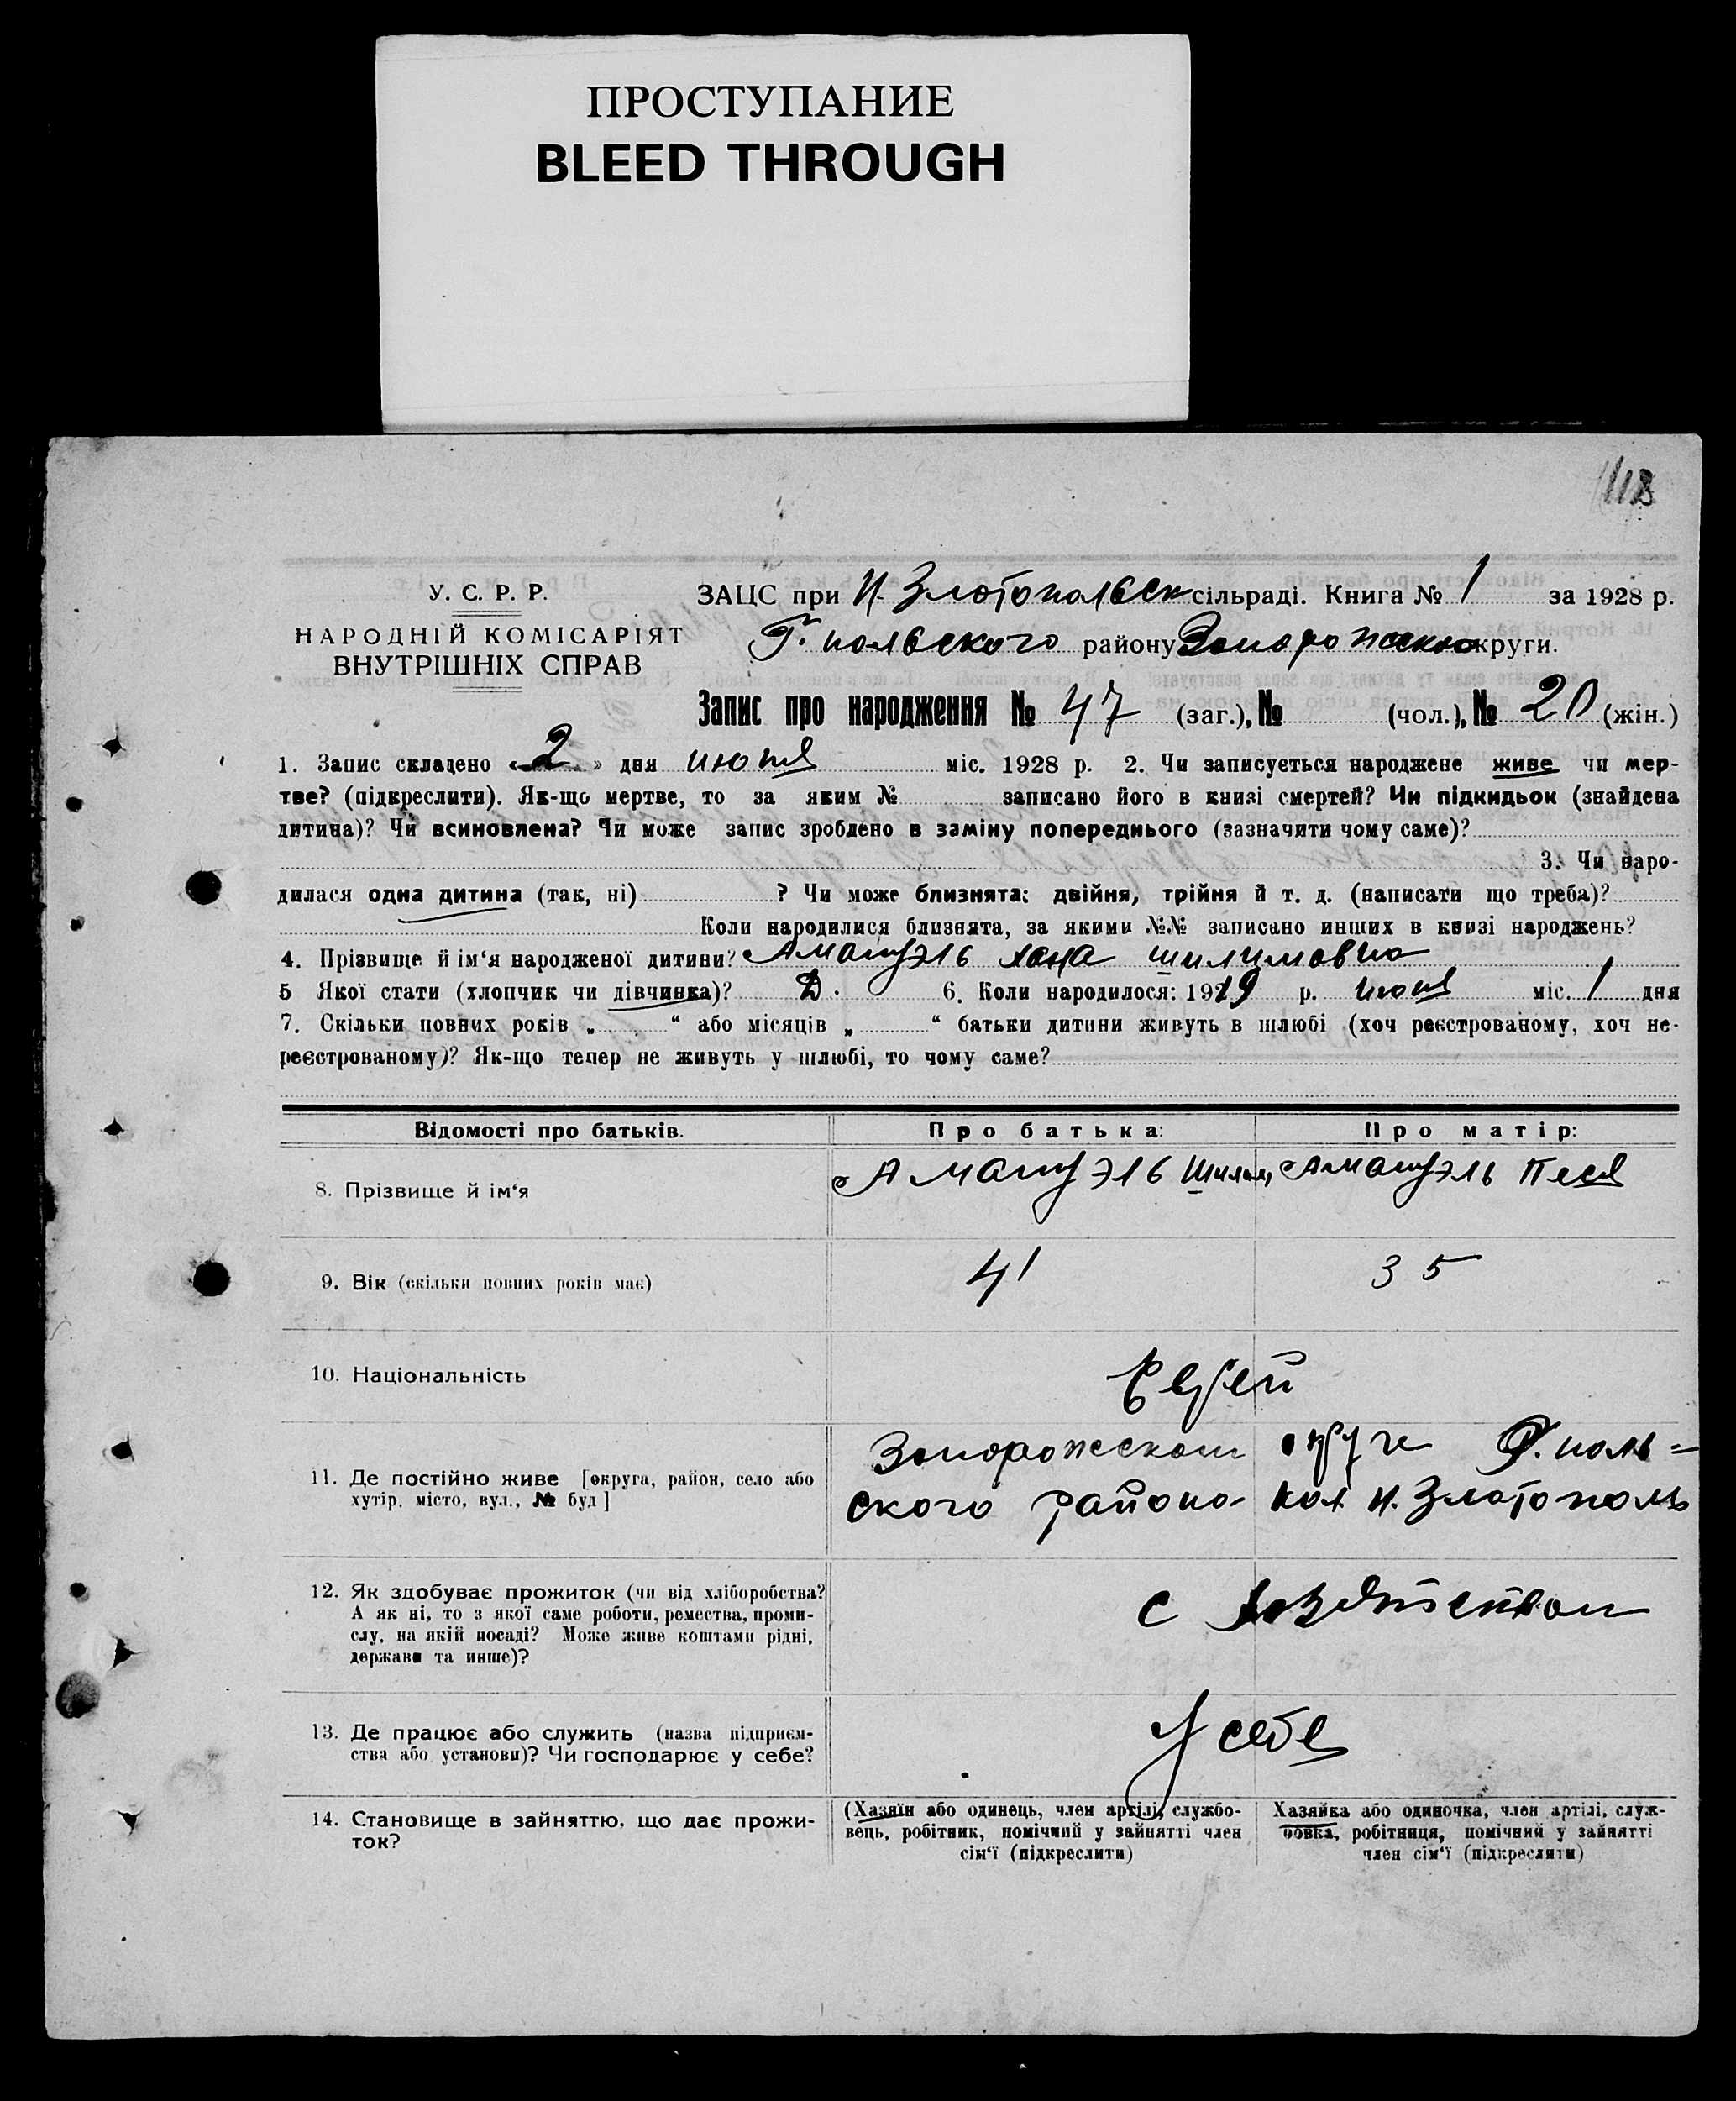 ПРОСТУПАНИЕ
BLEED THROUGH
118
У. С. Р. Р.
НАРОДНІЙ КОМІСАРІЯТ
ВНУТРІШНІХ СПРАВ
ЗАЦС при Н. Златопольск сільраді. Книга № 1 за 1928 р.
Г. польского району Запорожской округи.
Запис про народження № 47 (заг.), № (чол.), № 20 (жін.)
1. Запис складено « 2 » дня июня міс. 1928 р. 2. Чи записується народжене живе чи мер-
тве? (підкреслити). Як-що мертве, то за яким № записано його в книзі смертей? Чи підкидьок (знайдена
дитина)? Чи всиновлена? Чи може запис зроблено в заміну попереднього (зазначити чому саме)?
3. Чи наро-
дилася одна дитина (так, ні) ? Чи може близнята: двійня, трійня й т. д. (написати що треба)?
Коли народилися близнята, за якими №№ записано инших в книзі народжень?
4. Прізвище й ім'я народженої дитини? Амануэль Хана Шилимовна
5 Якої стати (хлопчик чи дівчинка)? Д. 6. Коли народилося: 1919 р. июня міс. 1 дня
7. Скільки повних років „ “ або місяців „ “ батьки дитини живуть в шлюбі (хоч реєстрованому, хоч не-
реєстрованому)? Як-що тепер не живуть у шлюбі, то чому саме?
Відомості про батьків. Про батька: Про матір:
8. Прізвище й ім'я Амануэль Амануэль Песя
9. Вік (скільки повних років має) 41 35
10. Національність Еврей
11. Де постійно живе [округа, район, село або
хутір, місто, вул., № буд]
Запорожской округе Г. поль=
ского района кол. Н. Златополь
12. Як здобуває прожиток (чи від хліборобства?
А як ні, то з якої саме роботи, ремества, проми-
слу, на якій посаді? Може живе коштами рідні,
держави та инше)?
с
13. Де працює або служить (назва підприєм-
ства або установи)? Чи господарює у себе?
У себе
14. Становище в зайняттю, що дає прожи-
ток?
(Хазяїн або одинець, член артілі, службо-
вець, робітник, помічний у зайнятті член
сім'ї (підкреслити)
Хазяйка або одиночка, член артілі, служ-
бовка, робітниця, помічний у зайнятті
член сім'ї (підкреслити)